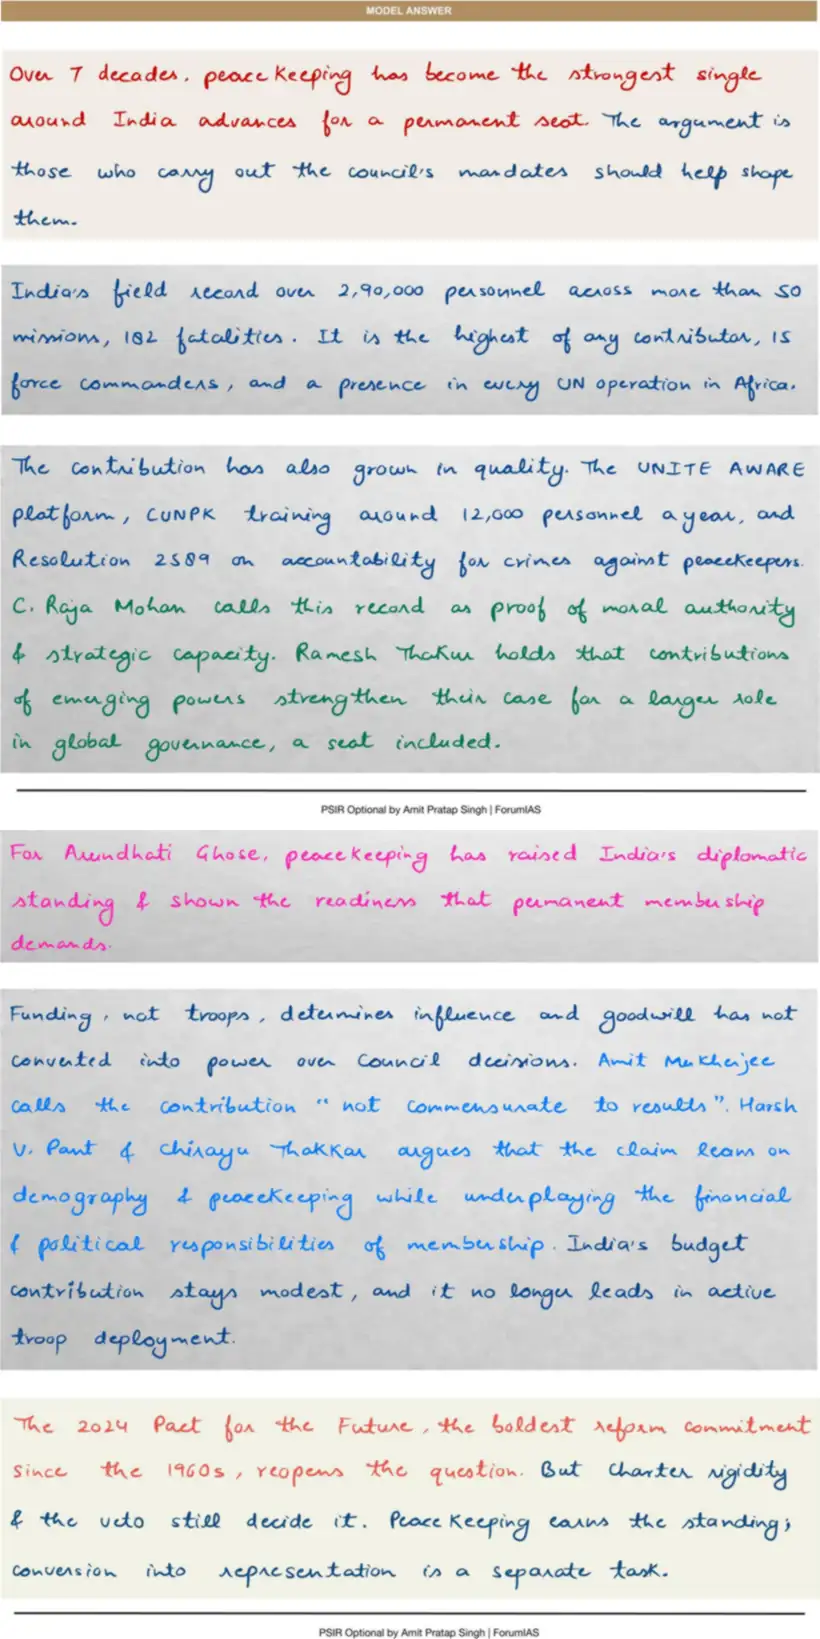 MODEL ANSWER
Over 7 decades, peace keeping has become the strongest single
around India advances for a permanent seat. The argument is
those who carry out the council's mandates should help shape
them.
India's field record over 2,90,000 personnel across more than 50
missions, 182 fatalities. It is the highest of any contributor, 15
force commanders, and a presence in every UN operation in Africa.
The contribution has also grown in quality. The UNITE AWARE
platform, CUNPK training around 12,000 personnel a year, and
Resolution 2589 on accountability for crimes against peacekeepers.
C. Raja Mohan calls this record as proof of moral authority
& strategic capacity. Ramesh Thakur holds that contributions
of emerging powers strengthen their case for a larger role
in global governance, a seat included.
PSIR Optional by Amit Pratap Singh | ForumIAS
For Arundhati Ghose, peace keeping has raised India's diplomatic
standing & shown the readiness that permanent membership
demands.
Funding, not troops, determines influence and goodwill has not
converted into power over Council decisions. Amit Mukherjee
calls the contribution "not commensurate to results". Harsh
V. Pant & Chirayu Thakkar argues that the claim leans on
demography & peacekeeping while underplaying the financial
& political responsibilities of membership. India's budget
contribution stays modest, and it no longer leads in active
troop deployment.
The 2024 Pact for the Future, the boldest reform commitment
since the 1960s, reopens the question. But Charter rigidity
& the veto still decide it. Peace Keeping earns the standing;
conversion into representation is a separate task.
PSIR Optional by Amit Pratap Singh | ForumIAS